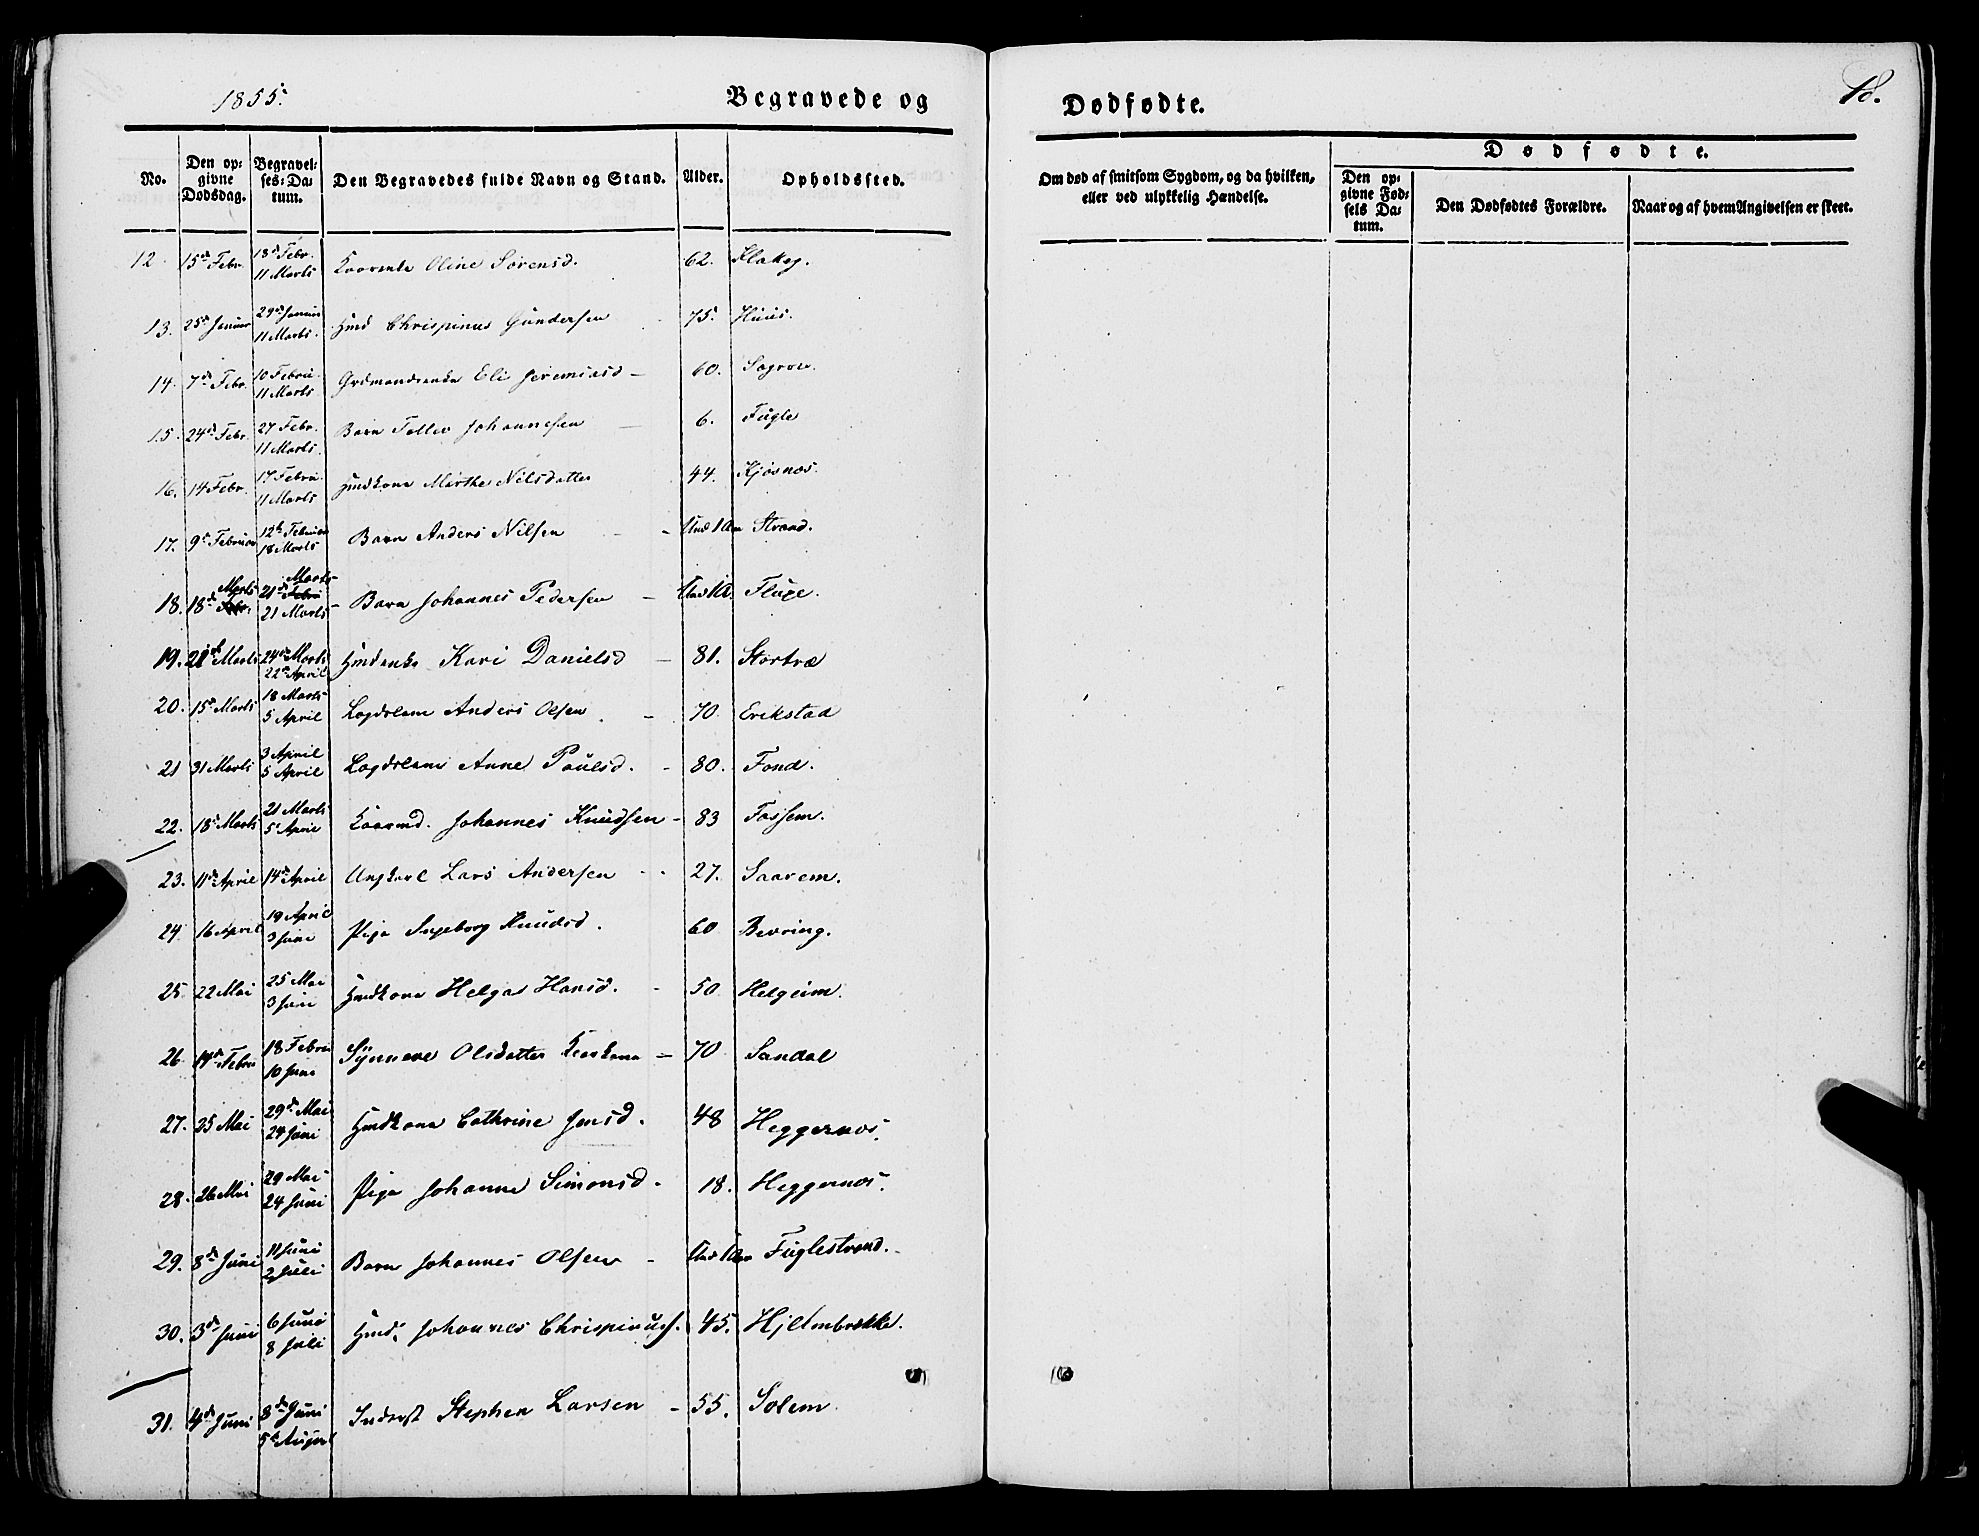 1855.
Begravede og
Dødfødte.
18.
No.
Den opgivne Dødsdag.
Begravelses-Datum.
Den Begravedes fulde Navn og Stand.
Alder.
Opholdssted.
Om død af smitsom Sygdom, og da hvilken, eller ved ulykkelig Hændelse.
Dødfødte.
Den opgivne Fødsels Datum.
Den Dødfødtes Forældre.
Naar og af hvem Angivelsen er skeet.
12 15de Febr. 18de Febr. 11 Marts Oline Sørensd. 62. Flakeg.
13. 25de Januar 29de Januar 11 Marts. Hmd Chrispinus Gundersen 75. Huus.
14. 7de Febr. 10 Febru. 11 Marts Eli Jeremiasd – 60.
15. 24de Febr. 27 Febr. 11 Marts. Barn Johannesen 6. Fugle
16. 14 Febr. 17 Febru. 11 Marts Hmdkone Marthe Nilsdatter 44. Kjøsnæs.
17. 9de Februar 12te Februar 18 Marts Barn Anders Nilsen – Und 1 Aar Strand.
18. 18de Marts 21de Marts 21 Marts Barn Johannes Pedersen – Und 1 A. Fluge.
19. 21de Marts 24de Marts 22de April Kari Danielsd – 81. Stortræ
20. 15de Marts 18 Marts 5 April Lægdslem Anders Olsen – 70. Erikstad
21 31 Marts 3 April 5 April Lægdslem Anne Paulsd. – 80. Fond.
22. 18de Marts 21 Marts 5 April Johannes Knudsen – 83 Fossem.
23. 11de April 14de April Ungkarl Lars Andersen 27. Saarem.
24. 16 April 19 April 3 Juni Pige Ingeborg Knudsd. 60 Bevring.
25. 22 Mai 25 Mai 3 Juni Hmdkone Helga Hansd. – 50 Helgeim.
26 14de Febru 18 Febru 10 Juni Synneve Olsdatter – 70 Sandal
27. 25 Mai 29de Mai 24 Juni Hmdkone Cathrine Jensd. 48 Heggernæs.
28. 26 Mai 29 Mai 24 Juni Pige Johanne Simonsd – 18. Heggernæs.
29. 8de Juni 11 Juni 2 Juli Barn Johannes Olsen – Und 1 Aar Fuglestrand.
30. 3de Juni 6 Juni 8 Juli Hmd. Johannes Chrispinus. 45. Hjelmbrekke.
31. 4de Juni 8de Juni 5te August Inderst Stephen Larsen – 55. Solem